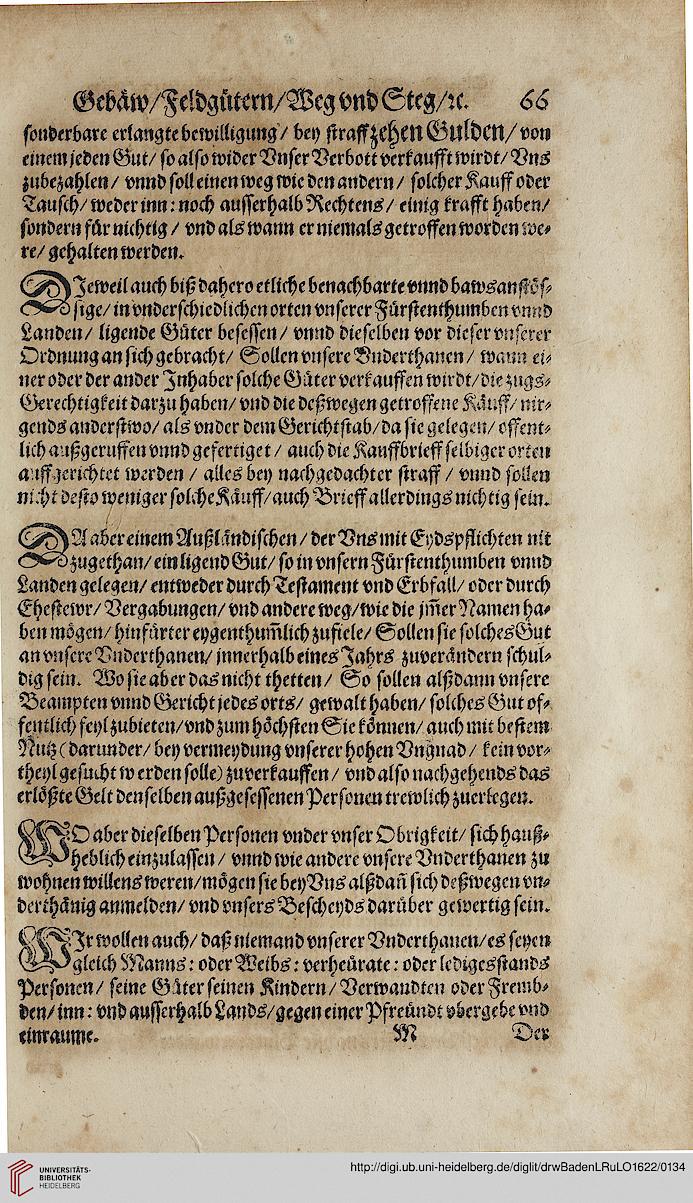 Gebäw/Feldgütern/Weg vnd Steg/ꝛc. 66
sonderbare erlangte bewilligung / bey straff zehen Gulden / von
einem jeden Gut / so also wider Vnser Verbott verkaufft wirdt / Vns
zubezahlen / vnnd soll einen weg wie den andern / solcher Kauff oder
Tausch / weder inn: noch ausserhalb Rechtens / einig krafft haben /
sondern für nichtig / vnd als wann er niemals getroffen worden we-
re / gehalten werden.
DJeweil auch biß dahero etliche benachbarte vnnd bawsanstös-
sige / in vnderschiedlichen orten vnserer Fürstenthumben vnnd
Landen / ligende Güter besessen / vnnd dieselben vor dieser vnserer
Ordnung an sich gebracht / Sollen vnsere Vnderthanen / wann ei-
ner oder der ander Inhaber solche Güter verkauffen wirdt / die zugs-
Gerechtigkeit darzu haben / vnd die deßwegen getroffene Käuff / nir-
gends anderstwo / als vnder dem Gerichtstab / da sie gelegen / offent-
lich außgeruffen vnnd gefertiget / auch die Kauffbrieff selbiger orten
auffgerichtet werden / alles bey nachgedachter straff / vnnd sollen
nicht desto weniger solche Käuff / auch Brieff allerdings nichtig sein.
DA aber einem Außländischen / der Vns mit Eydspflichten nit
zugethan / ein ligend Gut / so in vnsern Fürstenthumben vnnd
Landen gelegen / entweder durch Testament vnd Erbfall / oder durch
Ehestewr / Vergabungen / vnd andere weg / wie die jm̃er Namen ha-
ben mögen / hinfürter eygenthum̃lich zufiele / Sollen sie solches Gut
an vnsere Vnderthanen / innerhalb eines Jahrs zuverändern schul-
dig sein. Wo sie aber das nicht thetten / So sollen alßdann vnsere
Beampten vnnd Gericht jedes orts / gewalt haben / solches Gut of-
fentlich feyl zubieten / vnd zum höchsten Sie können / auch mit bestem
Nutz (darunder / bey vermeydung vnserer hohen Vngnad / kein vor-
theyl gesucht werden solle) zuverkauffen / vnd also nachgehends das
erlößte Gelt denselben außgesessenen Personen trewlich zuerlegen.
WO aber dieselben Personen vnder vnser Obrigkeit / sich hauß-
heblich einzulassen / vnnd wie andere vnsere Vnderthanen zu
wohnen willens weren / mögen sie bey Vns alßdañ sich deßwegen vn-
derthänig anmelden / vnd vnsers Bescheyds darüber gewertig sein.
WJr wollen auch / daß niemand vnserer Vnderthanen / es seyen
gleich Manns: oder Weibs: verheürate: oder lediges stands
Personen / seine Güter seinen Kindern / Verwandten oder Fremb-
den / inn: vnd ausserhalb Lands / gegen einer Pfreündt vbergebe vnd
einraume. M Der
UNIVERSITÄTS-
BIBLIOTHEK
HEIDELBERG
http://digi.ub.uni-heidelberg.de/diglit/drwBadenLRuLO1622/0134